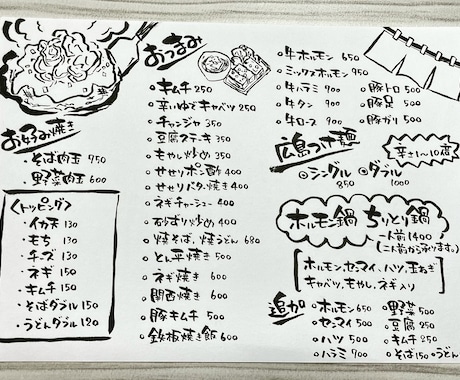 お好み焼き
そば肉玉 750
野菜肉玉 600
<トッピング>
・イカ天 130
・もち 130
・チーズ 130
・ネギ 150
・キムチ 150
・そばダブル 150
・うどんダブル 120
おつまみ
キムチ 250
辛いゆでキャベツ 250
チャンジャ 350
豆腐ステーキ 350
もやし炒め 350
せせりポン酢 400
せせりバター焼き 400
ネギチャーシュー 400
砂ずり炒め 400
焼そば、焼うどん 680
とん平焼き 500
ネギ焼き 600
関西焼き 600
豚キムチ 500
鉄板焼き飯 600
牛ホルモン 650
ミックスホルモン 950
牛ハラミ 900
牛タン 900
牛ロース 900
豚トロ 500
豚足 500
豚ガリ 500
広島つけ麺
辛さ1~10倍
シングル 850
ダブル 1000
ホルモン鍋 ちりとり鍋
一人前1400
(二人前から承ります。)
ホルモン、センマイ、ハツ、玉ねぎ
キャベツ、もやし、ネギ入り
追加
ホルモン 650
センマイ 500
ハツ 500
ハラミ 900
野菜 500
豆腐 250
キムチ 250
そば150・うどん